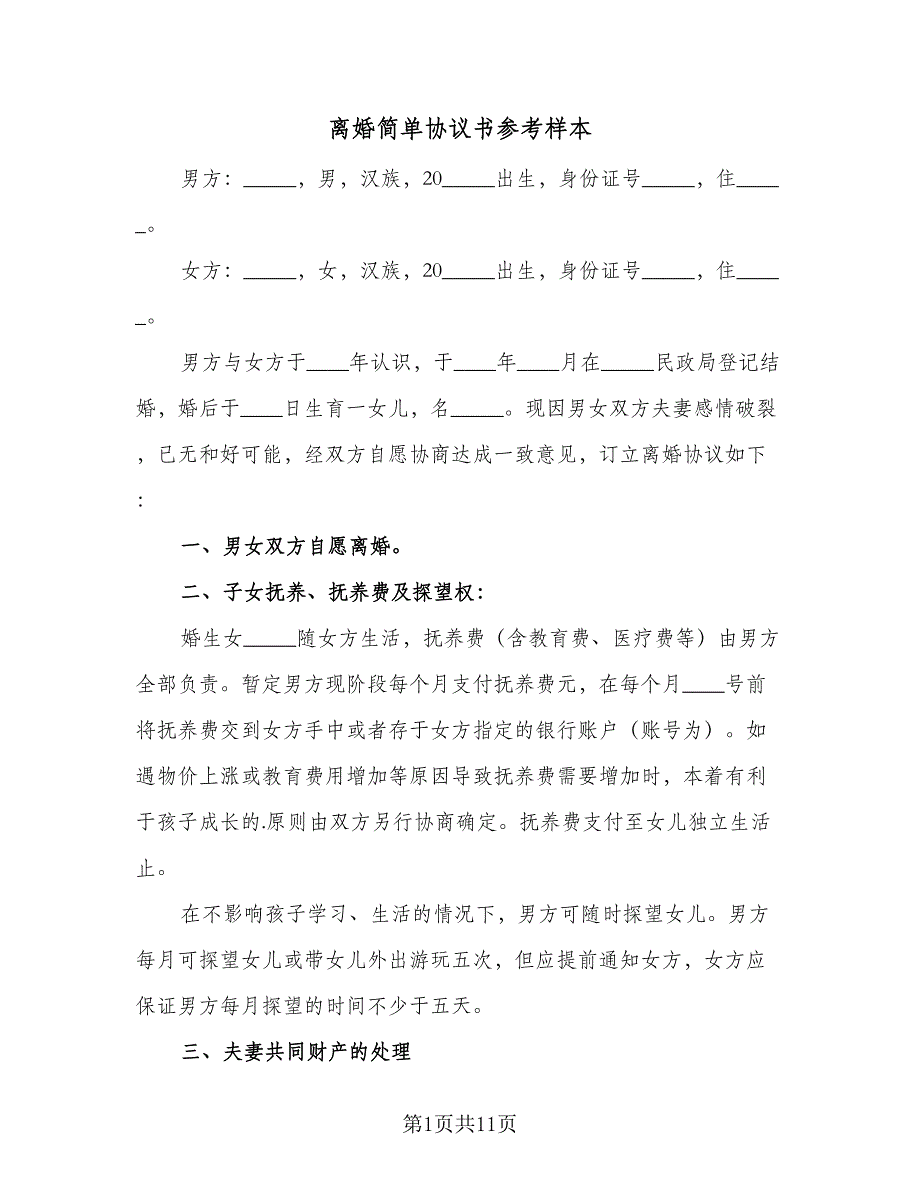 离婚简单协议书参考样本
男方：_____，男，汉族，20_____出生，身份证号_____，住____
_。
女方：_____，女，汉族，20_____出生，身份证号_____，住____
_。
男方与女方于____年认识，于____年____月在_____民政局登记结
婚，婚后于____日生育一女儿，名_____。现因男女双方夫妻感情破裂
，已无和好可能，经双方自愿协商达成一致意见，订立离婚协议如下
：
一、男女双方自愿离婚。
二、子女抚养、抚养费及探望权：
婚生女_____随女方生活，抚养费（含教育费、医疗费等）由男方
全部负责。暂定男方现阶段每个月支付抚养费元，在每个月____号前
将抚养费交到女方手中或者存于女方指定的银行账户（账号为）。如
遇物价上涨或教育费用增加等原因导致抚养费需要增加时，本着有利
于孩子成长的.原则由双方另行协商确定。抚养费支付至女儿独立生活
止。
在不影响孩子学习、生活的情况下，男方可随时探望女儿。男方
每月可探望女儿或带女儿外出游玩五次，但应提前通知女方，女方应
保证男方每月探望的时间不少于五天。
三、夫妻共同财产的处理
第1页共11页